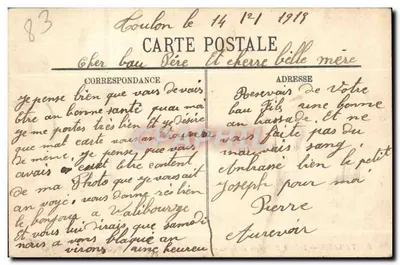 83
Toulon le 14 1 21 1918
CARTE POSTALE
Cher bau Père et cherre bélle mère
CORRESPONDANCE
je pense bien que vais devais
étre an bonne santé quai ma
je me portes très bien et je désire
que mat carte vou
de meme. je pense que vous
avais étre content
de ma Photo que je vais ait
an voyé, vous donné rés bien
le bonjour a Valibouze
et vous lui dirais que samedi
nous a vons blaqué an
virons une heureu
ADRESSE
Reservais de Votre
bau fils une bonne
an bassade. Et ne
vais faite pas du
mauvais sang.
Anbrasé bien le petit
Joseph pour moi
Pierre
Aurevoir